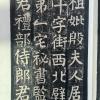 祖妣殷夫人居
十字街西北壁
第一宅祕書監
君禮部侍郎君